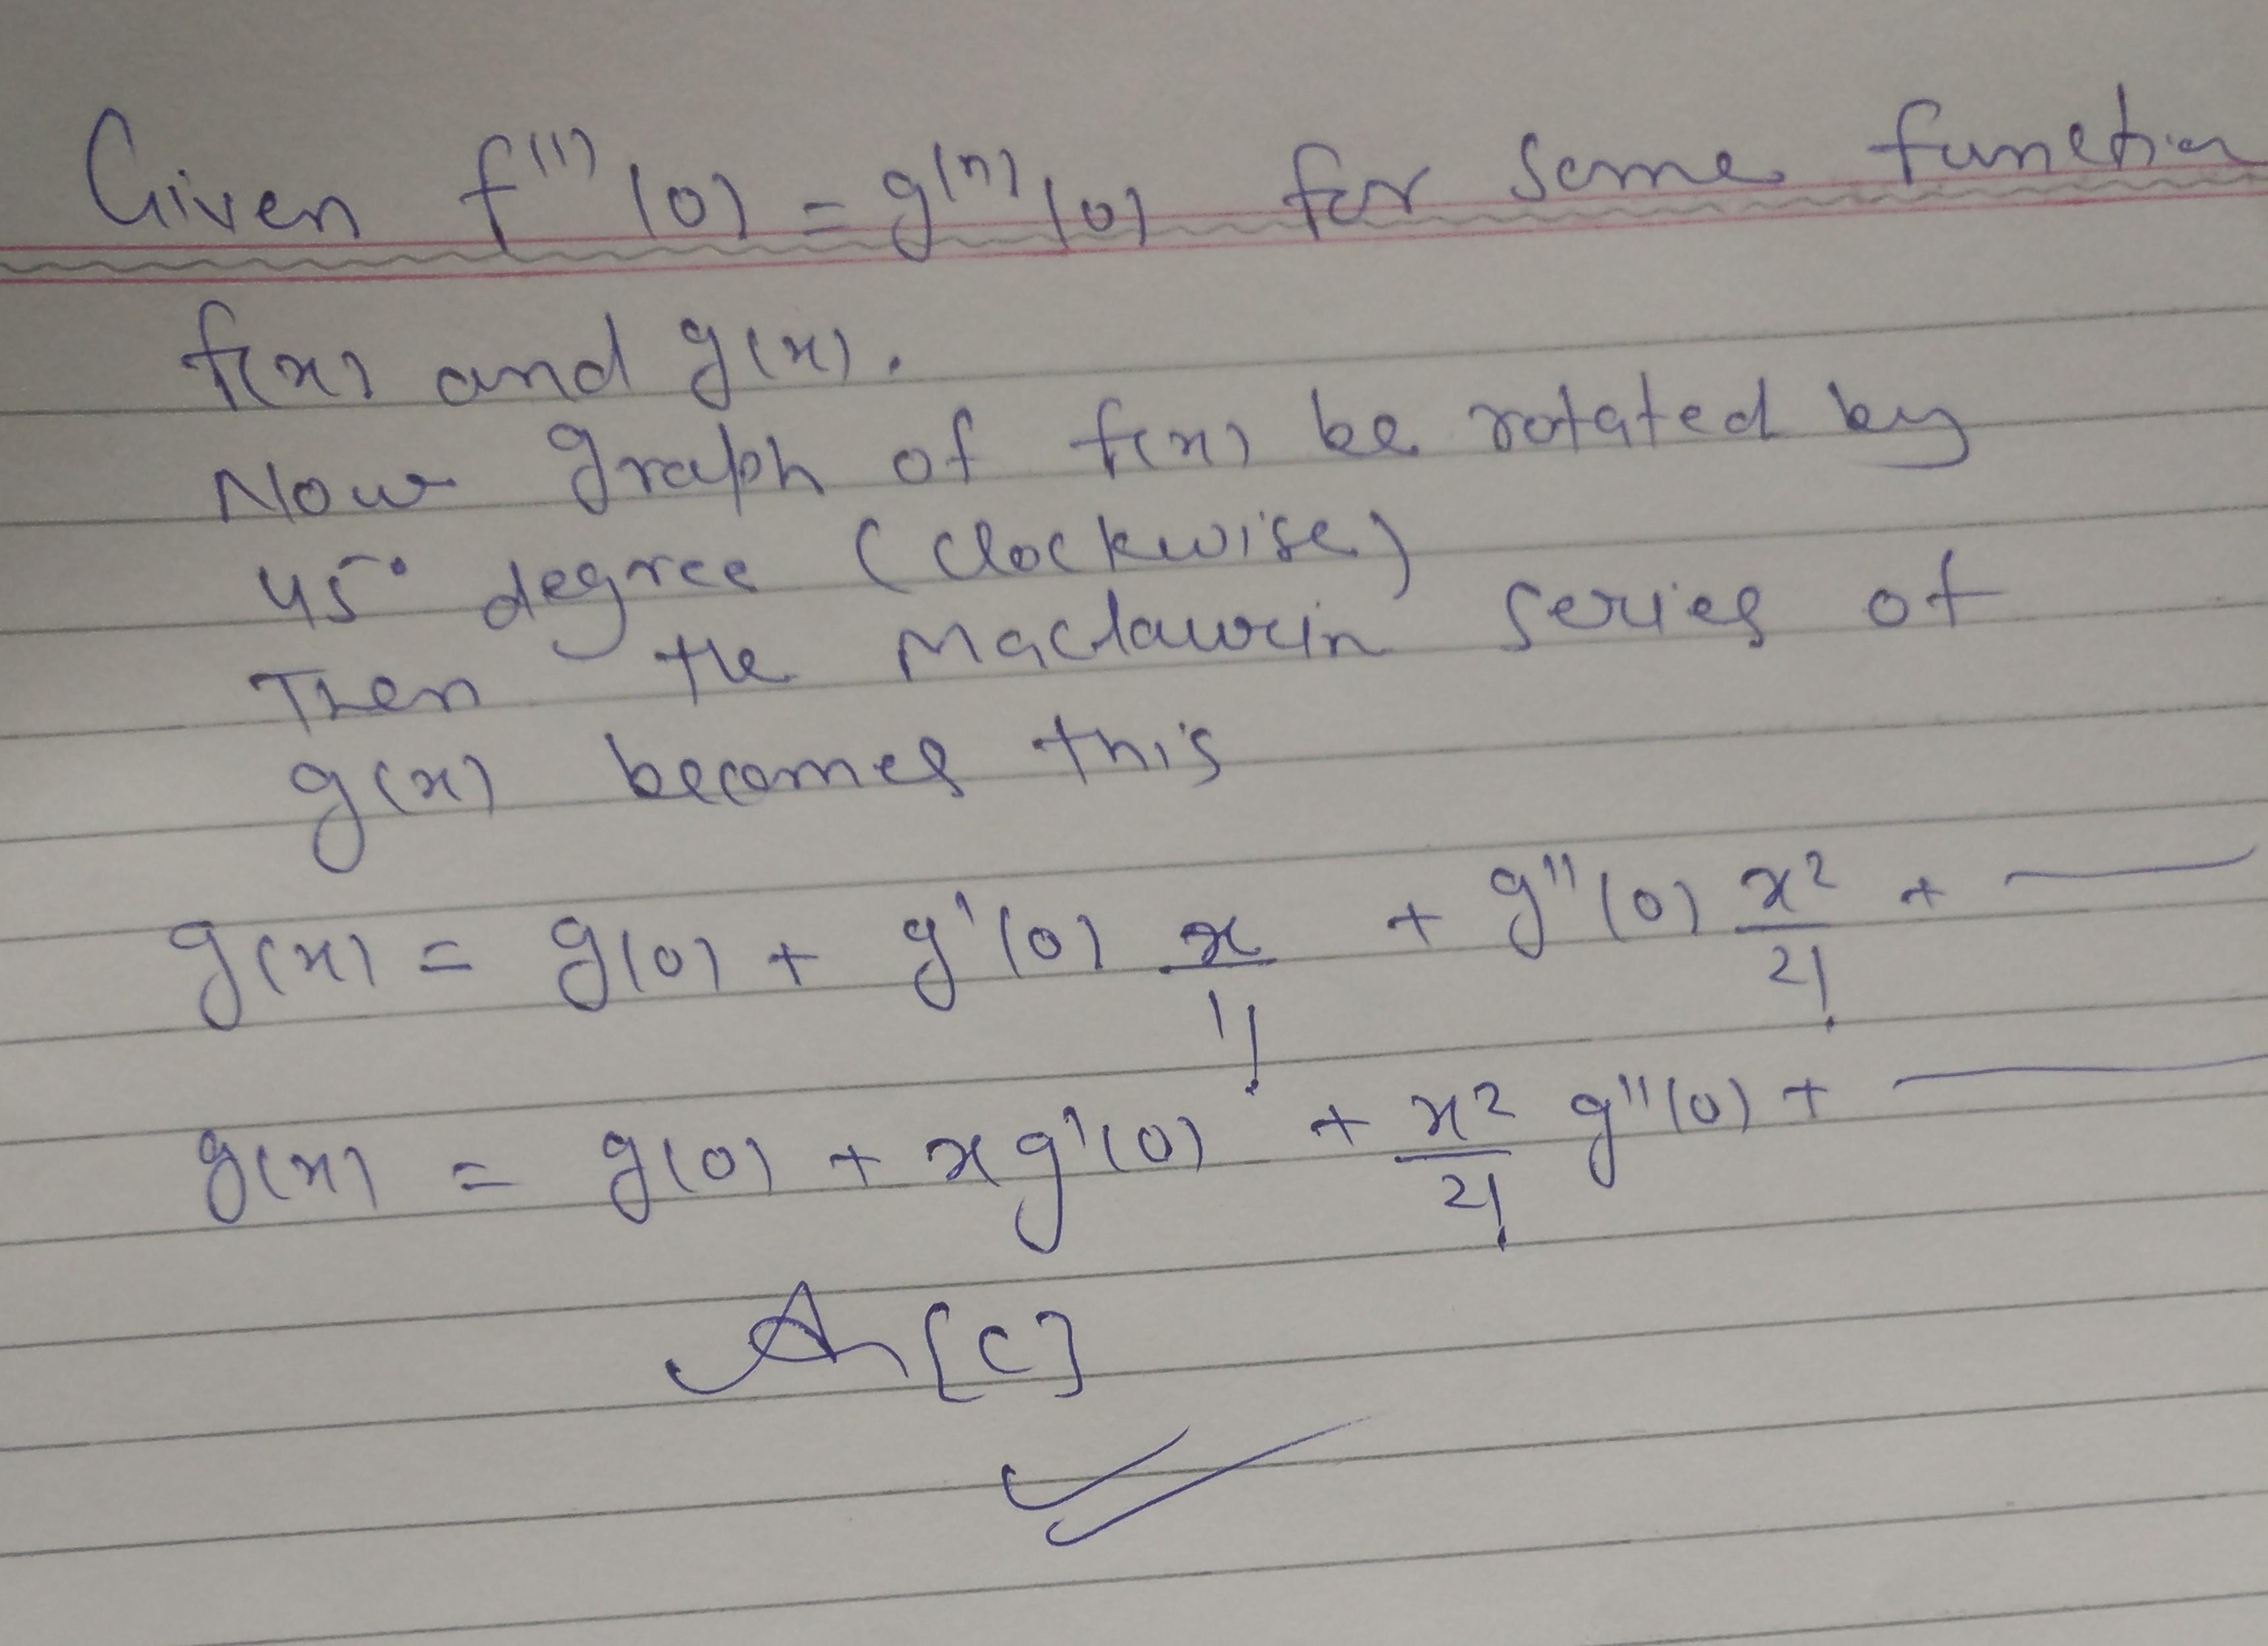 Given f⁽¹⁾(0) = g⁽ⁿ⁾(0) for some function
f(x) and g(x).
Now graph of f(x) be rotated by
45° degree (clockwise)
Then the Maclaurin series of
g(x) becomes this
g(x) = g(0) + g'(0) x/1! + g''(0) x²/2! + ——
g(x) = g(0) + x g'(0) + x²/2! g''(0) + ——
An [C]